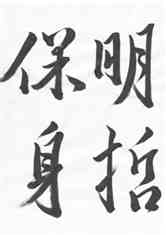 明哲
保身